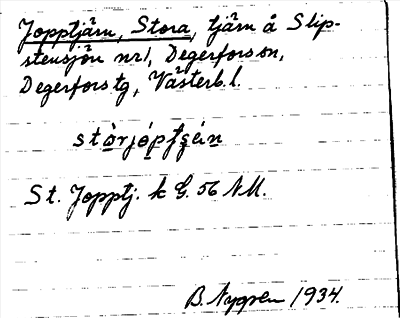 Jopptjärn, Stora, tjärn å Slip-
stensjön nr 1, Degerfors sn,
Degerfors tg, Västerb. l.
St. Jopptj. k G. 56 NM.
B. Nygren 1934.